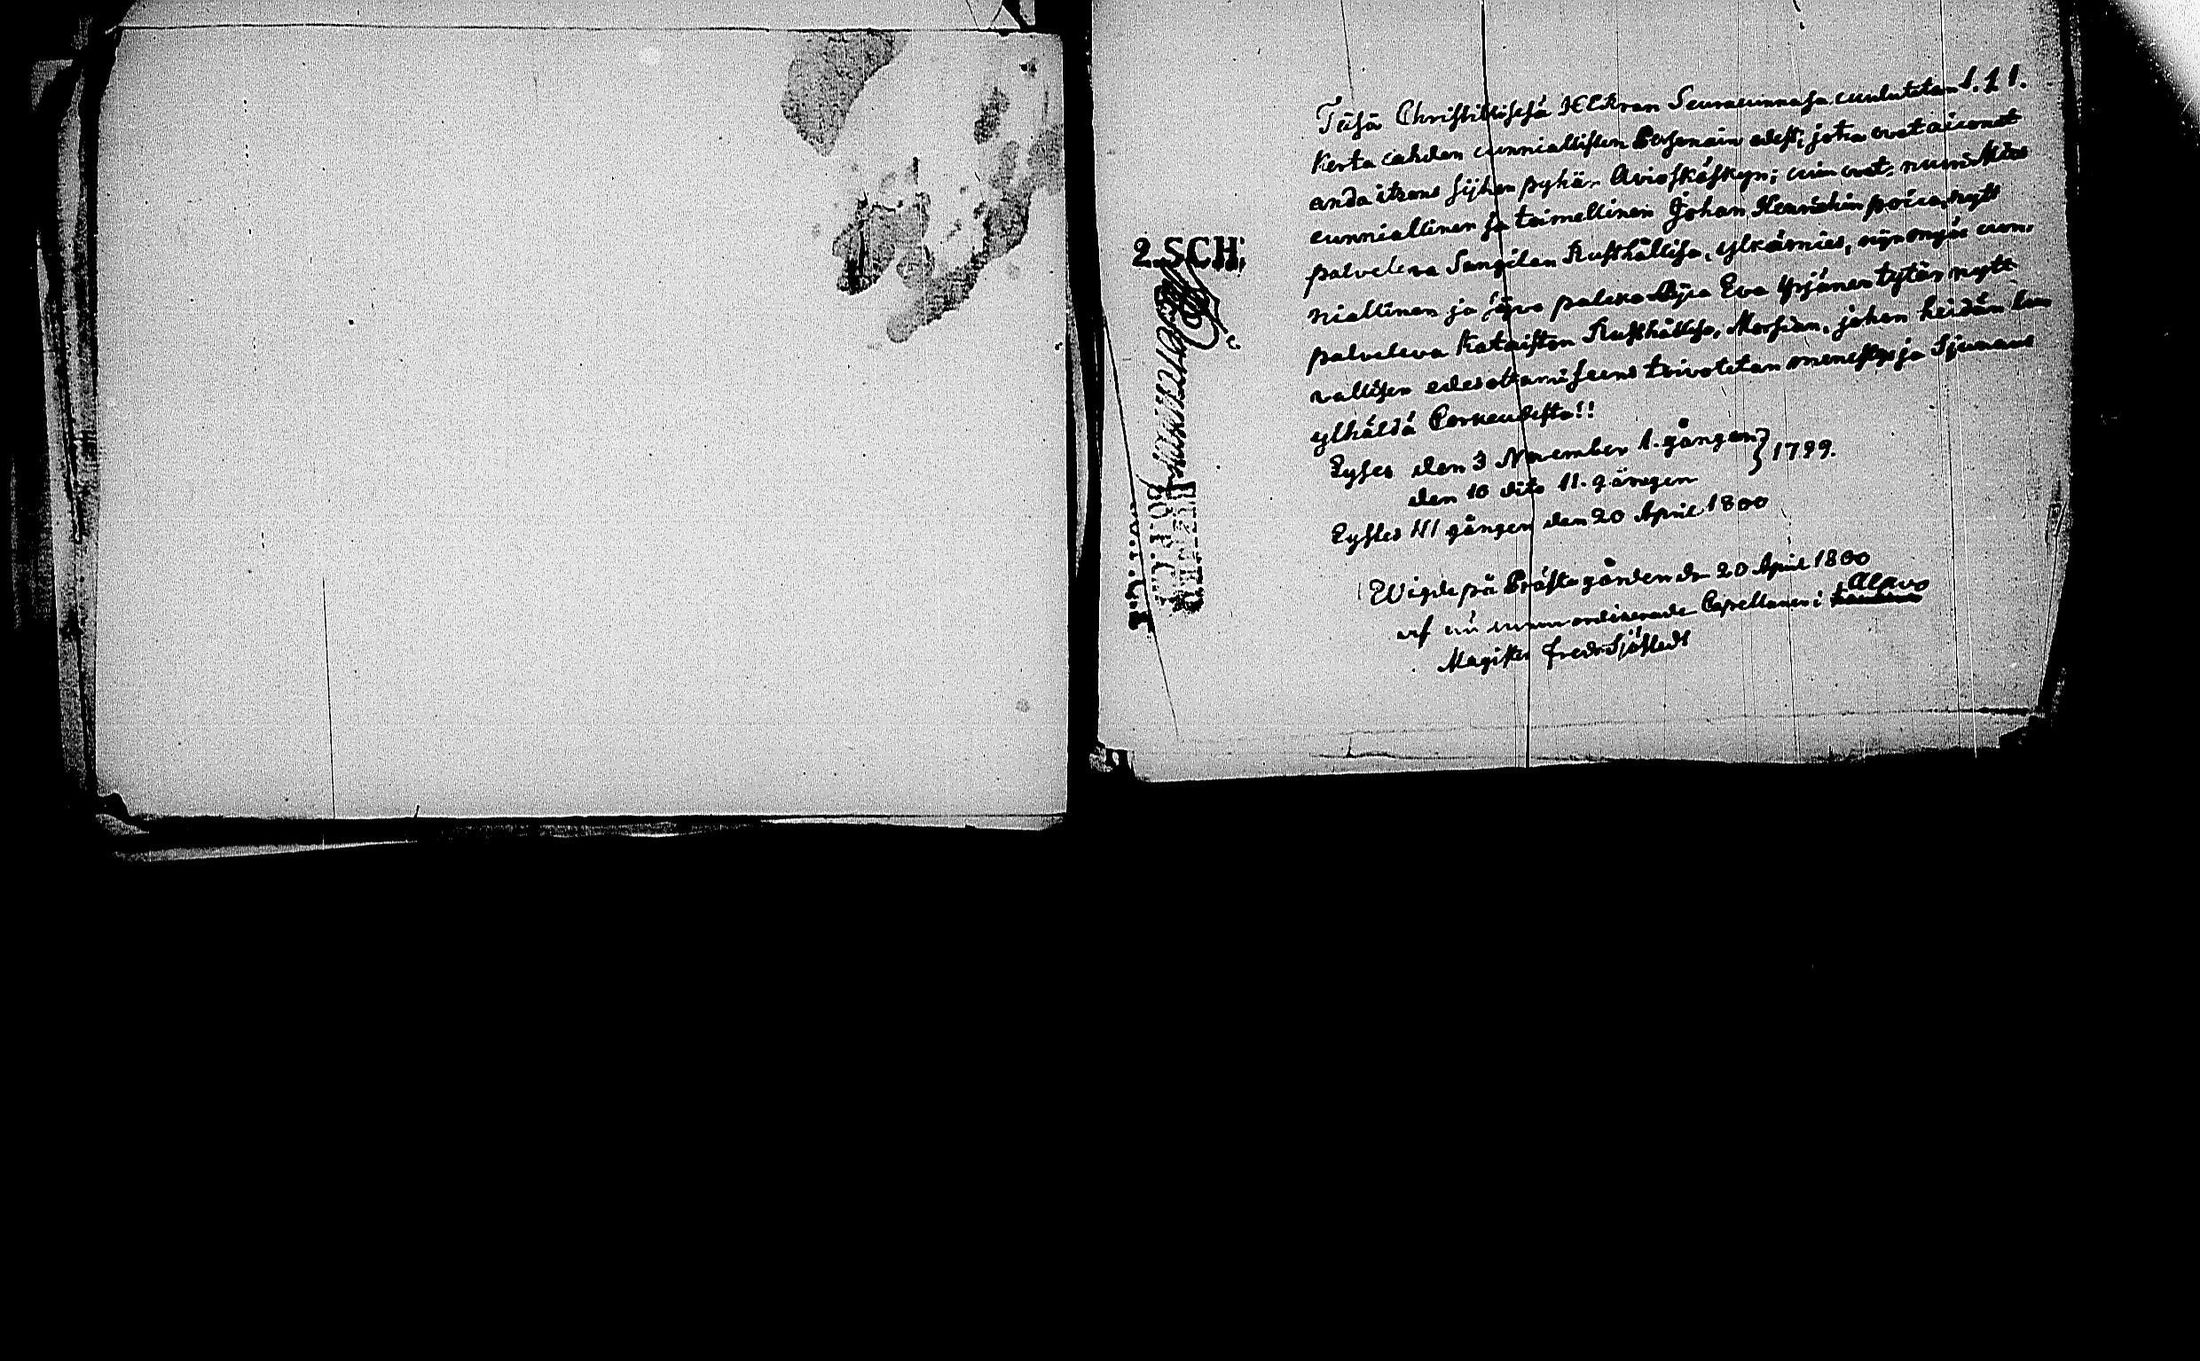 2 SCH
Täsä Christillisesä Ulfvan Seuracunnasa cuulutetan I. II.
kerta cahden cunniallisten Personain edest, jotca ovat aiconet
anda itzens sijhen pyhän Avioskäskyn; cuin ovat: nuori Mies
cunniallinen ja toimellinen Johan Henrichin poica, nytt
palveleva Sangilan Rusthållisa, ylkämies, niin myös cun-
niallinen ja sijvo palcka Pijca Eva Yrjänen tytär nytt
palveleva Kataisten Rusthållisa, Morsian, johon heidän lu-
vallisen edesottamiseens toivotetan menestys ja Sjunaus
ylhäldä Corkeudesta!!
Lystes den 3 November 1. gången } 1799.
den 10 dito 11. gången
Lystes III gången den 20 April 1800
Wigde på Prästegården d. 20 April 1800
af Capellanen i Alavo
Magister Fredr Sjöstedt